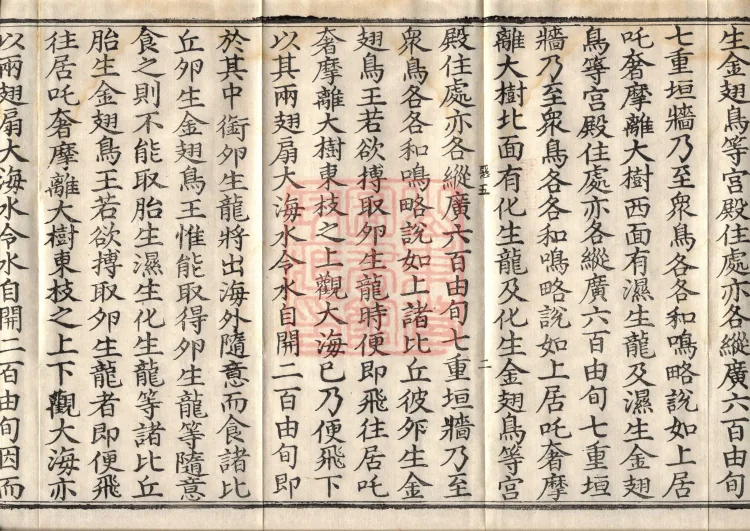 生金翅鳥等宮殿住處亦各縱廣六百由旬
七重垣牆乃至眾鳥各各和鳴略說如上居
吒奢摩離大樹西面有濕生龍及濕生金翅
鳥等宮殿住處亦各縱廣六百由旬七重垣
牆乃至眾鳥各各和鳴略說如上居吒奢摩
離大樹北面有化生龍及化生金翅鳥等宮
殿住處亦各縱廣六百由旬七重垣牆乃至
眾鳥各各和鳴略說如上諸比丘彼卵生金
翅鳥王若欲搏取卵生龍時便即飛往居吒
奢摩離大樹東枝之上觀大海已乃便飛下
以其兩翅扇大海水令水自開二百由旬即
於其中銜卵生龍將出海外隨意而食諸比
丘卵生金翅鳥王惟能取得卵生龍等隨意
食之則不能取胎生濕生化生龍等諸比丘
胎生金翅鳥王若欲搏取卵生龍者即便飛
往居吒奢摩離大樹東枝之上下觀大海亦
以兩翅扇大海水令水自開二百由旬因而